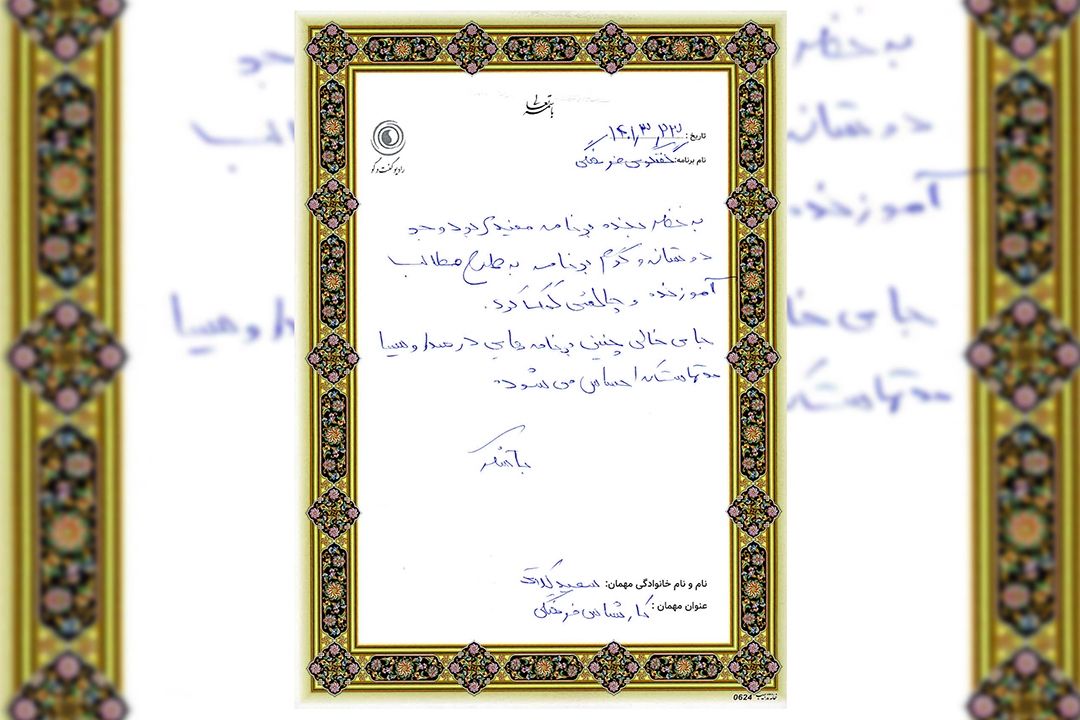 باسمه تعالی
تاریخ: ۱۴۰۱/۳/۲۲
رادیو گفت و گو
نام برنامه: گفتگوی فرهنگی
به نظر بنده برنامه مفیدی بود وجود
دوستان و گرم برنامه به طرح مطالب
آموزنده و چالشی کمک کرد.
جای خالی چنین برنامه هایی در صدا و سیما
مدتهاست که احساس می شود.
با تشکر
نام و نام خانوادگی مهمان: سعید
عنوان مهمان: کارشناس فرهنگی
0624